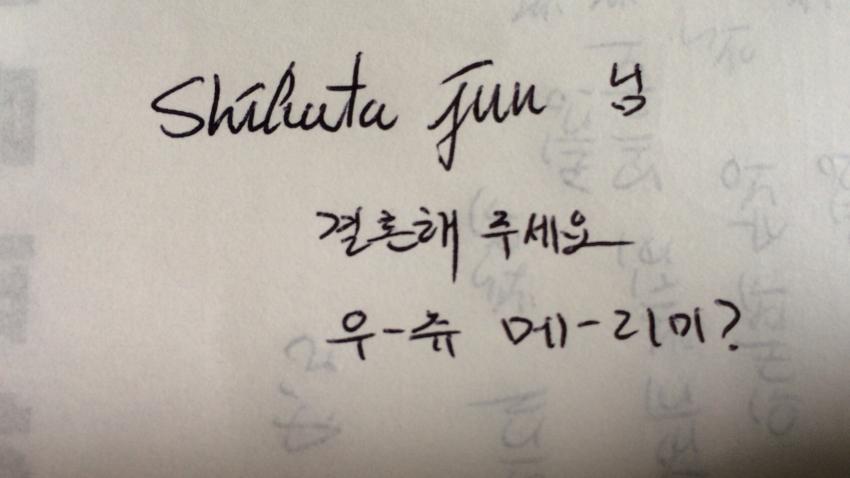 Shihuta jun 님
결혼해 주세요
우-쥬 메-리미?